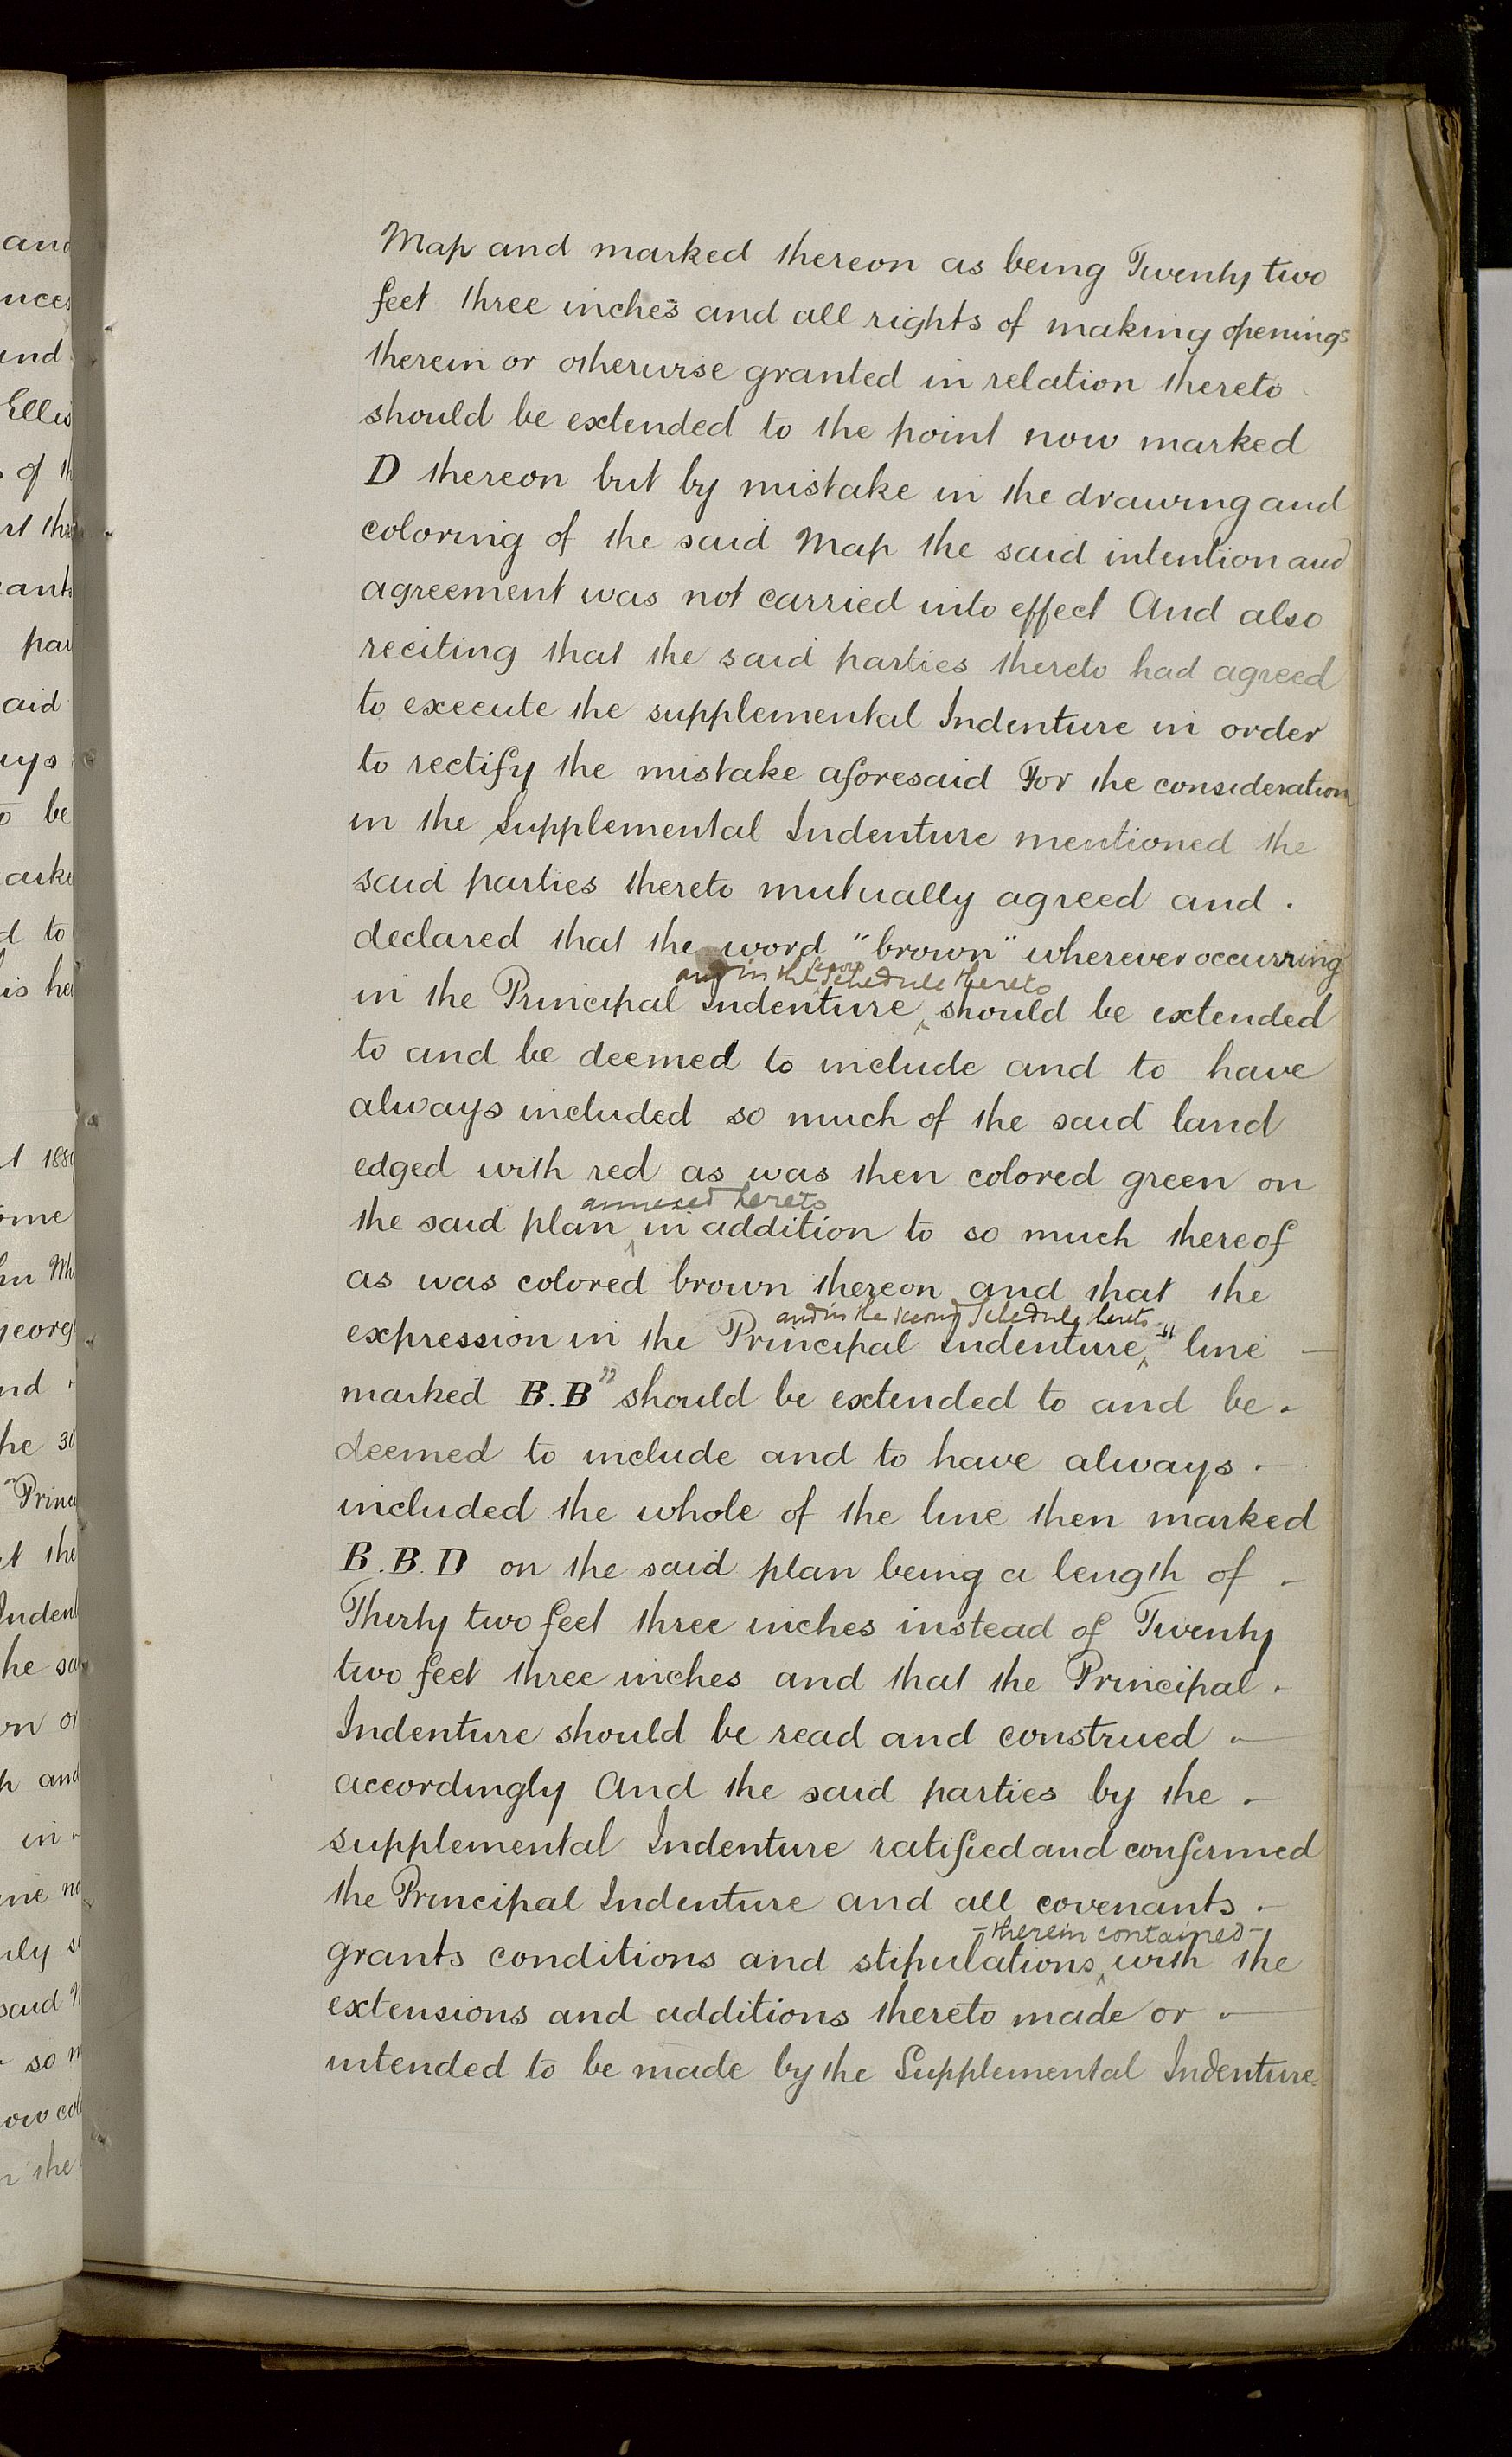 and
nces
and
Ellis
of th
rt the
rants
par
aid
ays
to be
arke
d to
his hei
t 188
ome
hn Mc
Georg
nd
he 30
Princ
t the
Indent
he sa
wn on
h and
in
ine no
nly so
said M
so m
now col
n the
Map and marked thereon as being Twenty two
feet three inches and all rights of making openings
therein or otherwise granted in relation thereto
should be extended to the point now marked
D thereon but by mistake in the drawing and
coloring of the said Map the said intention and
agreement was not carried into effect And also
reciting that the said parties thereto had agreed
to execute the supplemental Indenture in order
to rectify the mistake aforesaid For the consideration
in the Supplemental Indenture mentioned the
said parties thereto mutually agreed and .
declared that the word "brown" wherever occurring
and in the second Schedule thereto
in the Principal Indenture ‸ should be extended
to and be deemed to include and to have
always included so much of the said land
edged with red as was then colored green on
annexed hereto
the said plan ‸ in addition to so much thereof
as was colored brown thereon and that the
and in the second Schedule hereto
expression in the Principal Indenture ‸ "line —
marked B.B" should be extended to and be -
deemed to include and to have always -
included the whole of the line then marked
B.B.D on the said plan being a length of -
Thirty two feet three inches instead of Twenty
two feet three inches and that the Principal -
Indenture should be read and construed -
accordingly And the said parties by the -
supplemental Indenture ratified and confirmed
the Principal Indenture and all covenants -
- therein contained -
grants conditions and stipulations ‸ with the
extensions and additions thereto made or -
intended to be made by the Supplemental Indenture